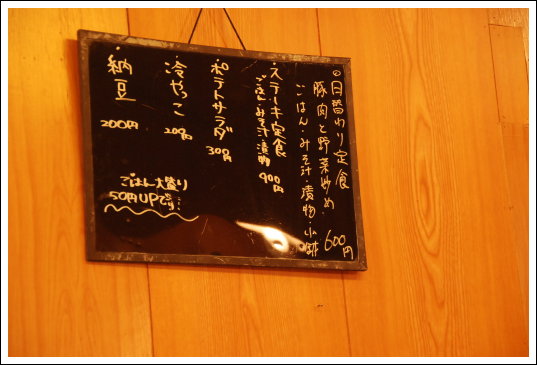 ◎日替わり定食
豚肉と野菜炒め。
ごはん・みそ汁・漬物・小鉢
600円
・ステーキ定食
ごはん・みそ汁・漬物
900円
・ポテトサラダ
300円
・冷やっこ
200円
・納豆
200円
ごはん大盛り
50円UPです!